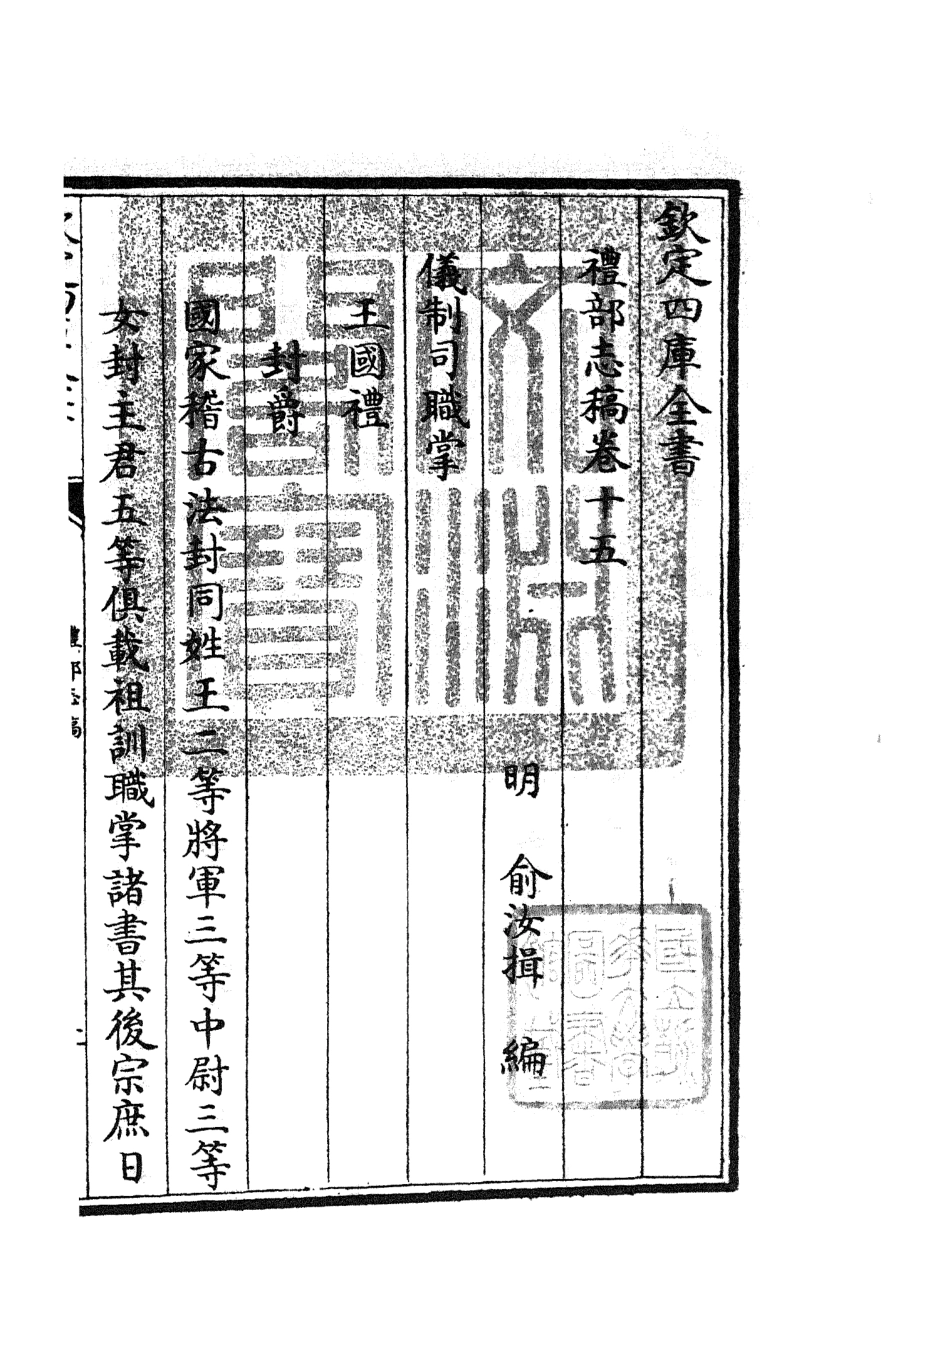 欽定四庫全書
禮部志稿卷十五
明 俞汝揖 編
儀制司職掌
王國禮
封爵
國家稽古法封同姓王二等將軍三等中尉三等
女封主君五等俱載祖訓職掌諸書其後宗庶日
禮部志稿